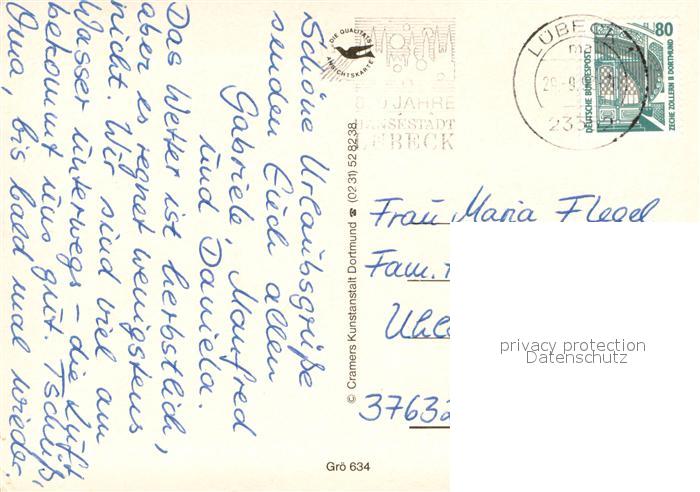 Schöne Urlaubsgrüße
senden Euch allen
Gabriele, Manfred
und Daniela.
Das Wetter ist herbstlich,
aber es regnet wenigstens
nicht. Wir sind viel am
Wasser unterwegs – die Luft
bekommt uns gut. Tschüß,
Oma, bis bald mal wieder.
DIE QUALITÄTS
ANSICHTSKARTE
JAHRE
HANSESTADT
LÜBECK
LÜBECK
80
DEUTSCHE BUNDESPOST
ZECHE ZOLLERN II DORTMUND
© Cramers Kunstanstalt Dortmund ☎ (0231) 528238
Frau Maria Flegel
Fam.
37632
privacy protection
Datenschutz
Grö 634